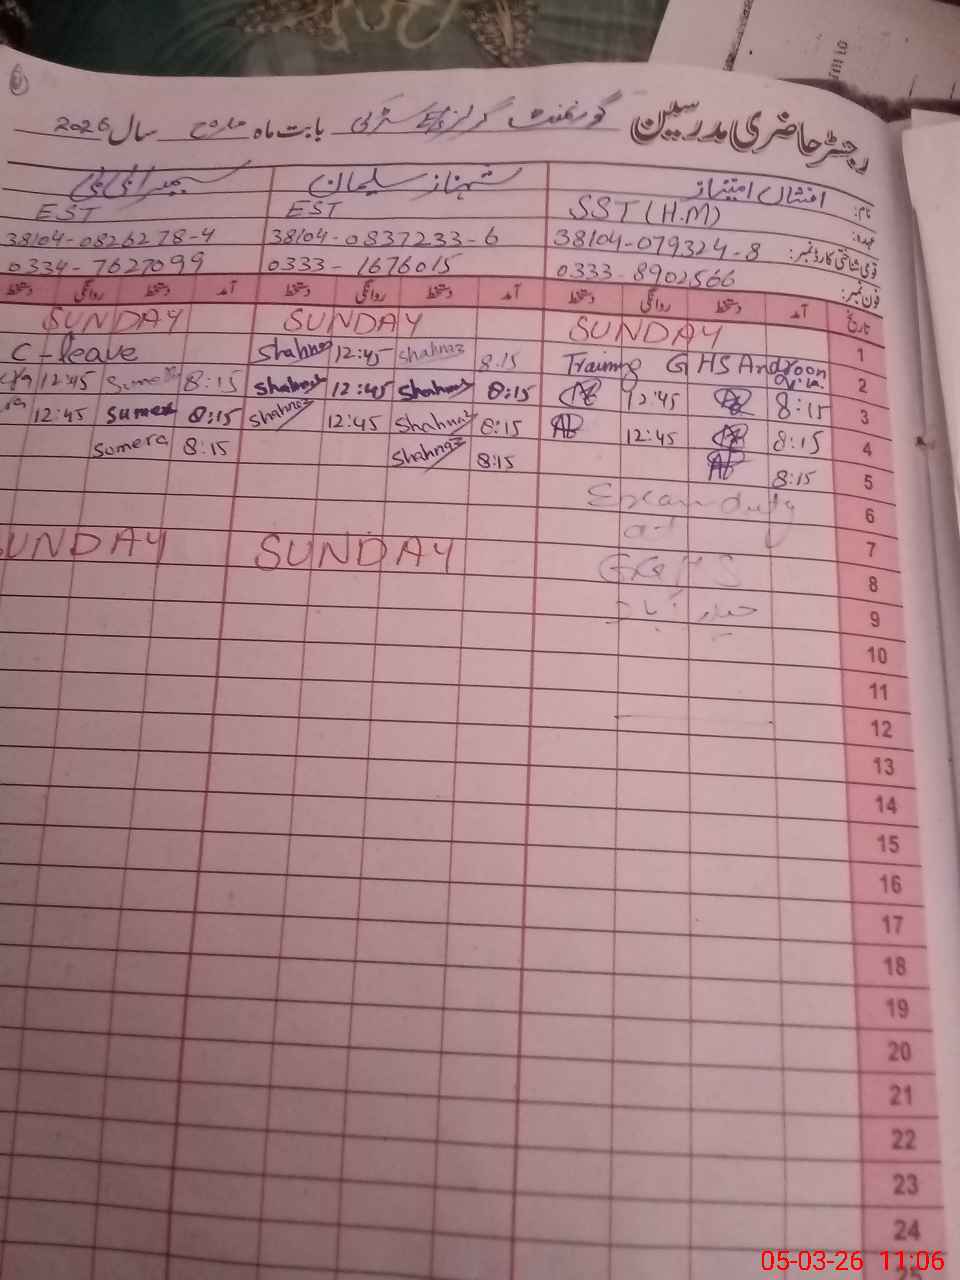 رجسٹر حاضری مدرسین گورنمنٹ گرلز بابت ماہ مارچ سال 2026
نام: افشاں امتیاز شہناز سلیمان
عہدہ: SST (H.M) EST EST
قومی شناختی کارڈ نمبر: 38104-079324-8 38104-0837233-6 38104-0826278-4
فون نمبر: 0333-8902566 0333-1676015 0334-7627099
تاریخ آمد دستخط روانگی دستخط آمد دستخط روانگی دستخط آمد دستخط روانگی دستخط
1 SUNDAY SUNDAY SUNDAY
2 Training GHS Androon 8:15 Shahnaz 12:45 Shahnaz C-leave
3 8:15 12:45 8:15 Shahnaz 12:45 Shahnaz 8:15 Sumera 12:45
4 8:15 12:45 8:15 Shahnaz 12:45 Shahnaz 8:15 Sumera 12:45
5 8:15 8:15 Shahnaz 8:15 Sumera
6 Exam duty
7 at
8 SUNDAY SUNDAY
9
10
11
12
13
14
15
16
17
18
19
20
21
22
23
24
25
05-03-26 11:06